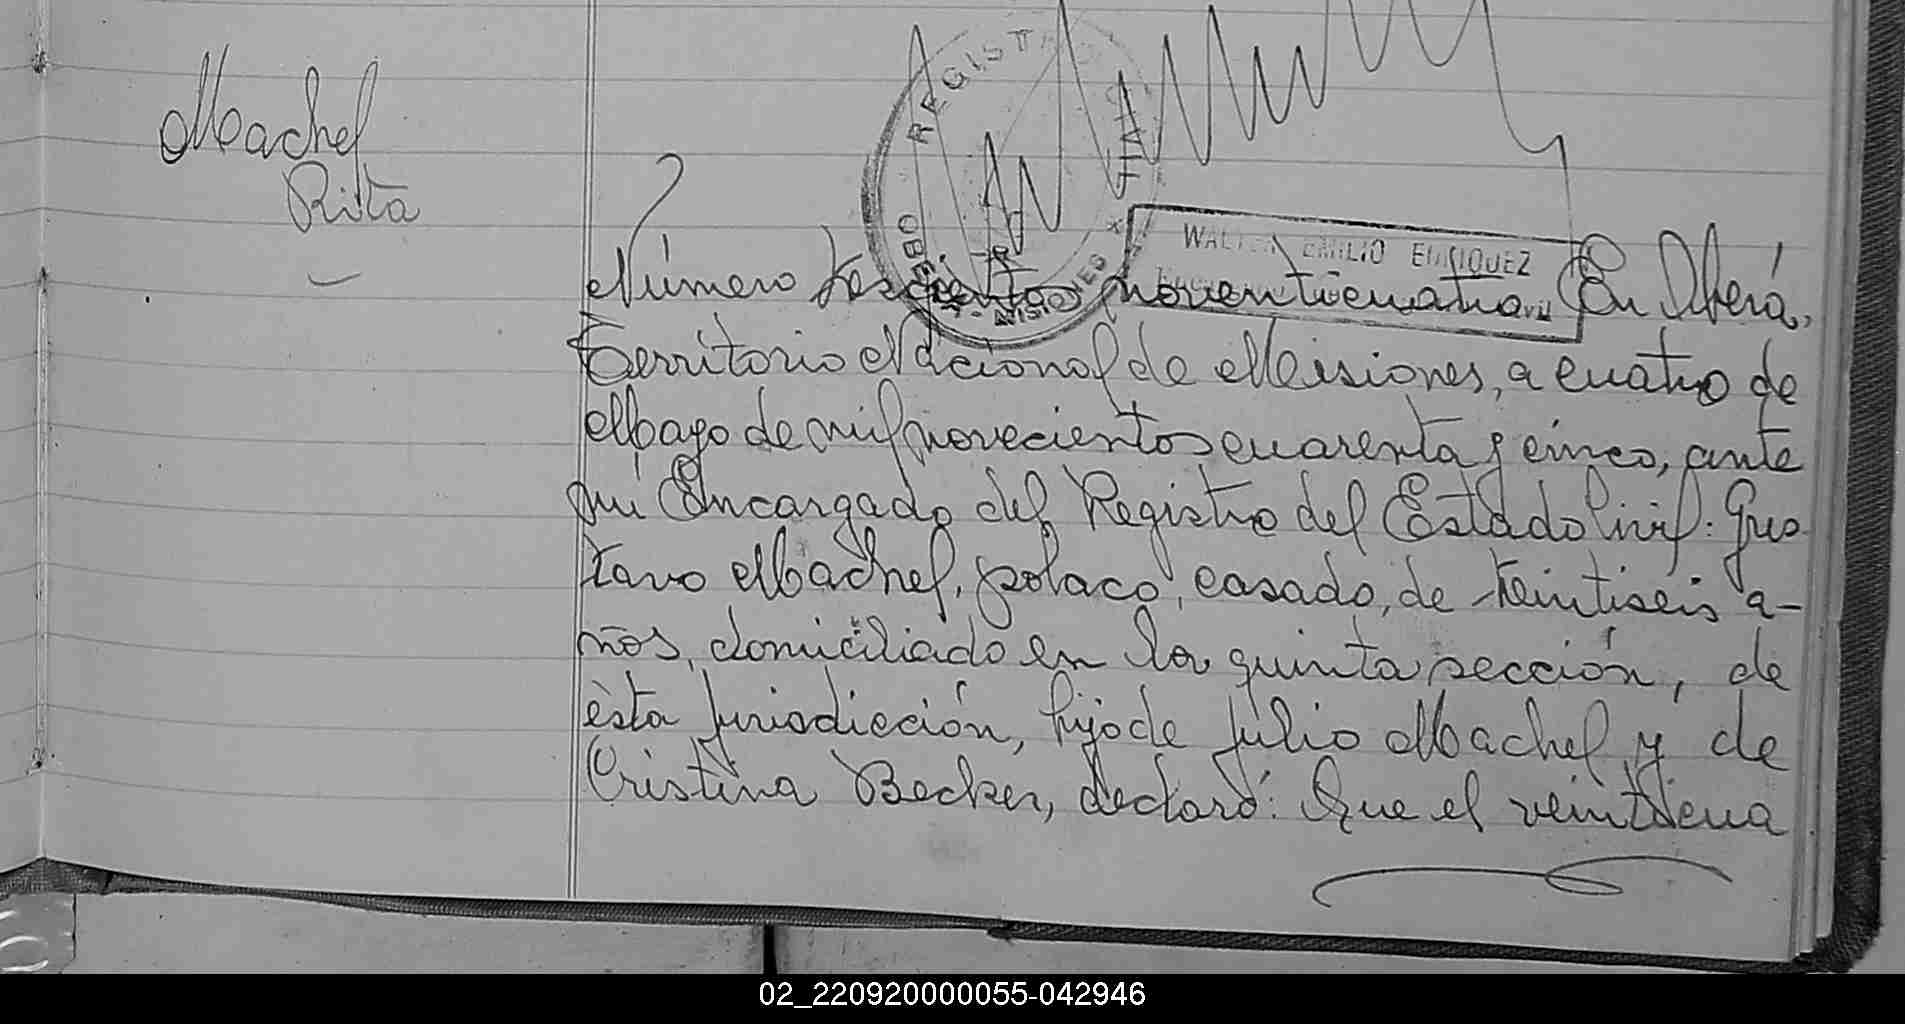 Machel
Rita
REGISTRO CIVIL
MISIONES
WALTER EMILIO ENRIQUEZ
Número trescientos noventicuatro. En Oberá,
Territorio Nacional de Misiones, a cuatro de
Mayo de mil novecientos cuarenta y cinco, ante
mí Encargado del Registro del Estado Civil: Gus
tavo Machel, polaco, casado, de treintiseis a-
ños, domiciliado en la quinta sección, de
ésta jurisdicción, hijo de Julio Machel y de
Cristina Becker, declaró: Que el veinticua
02_220920000055-042946